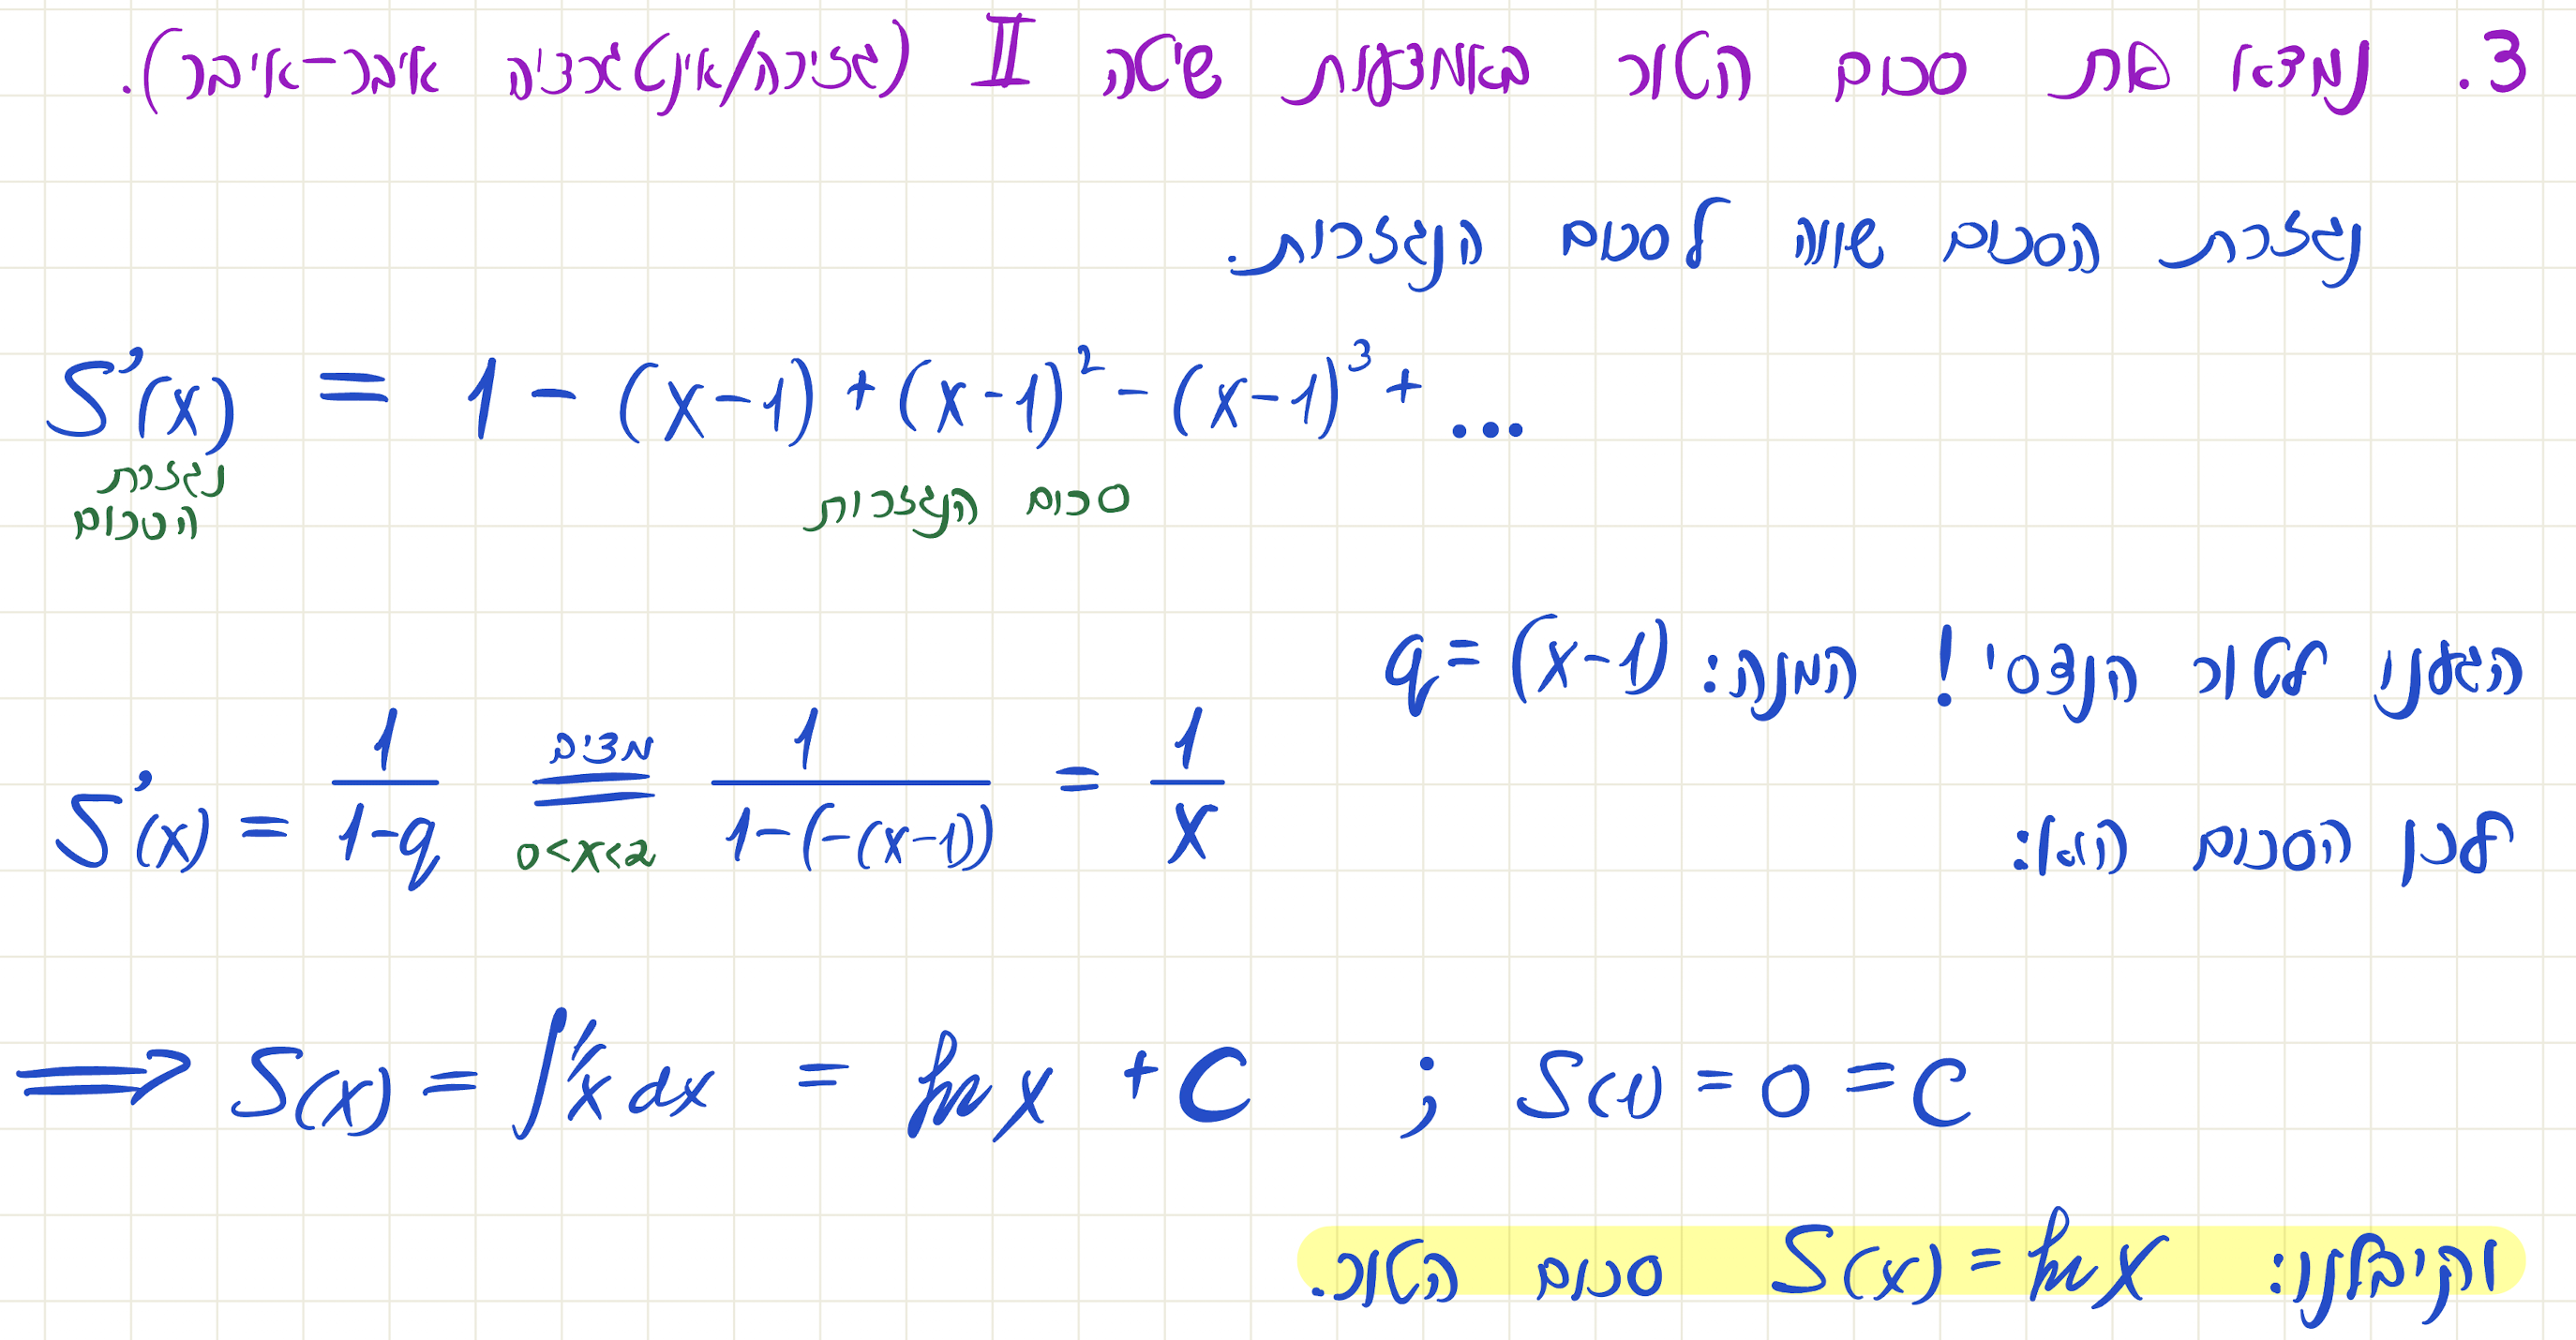 3. נמצא את סכום הטור באמצעות שיטה II (גזירה/אינטגרציה איבר-איבר).
נגזרת הסכום שווה לסכום הנגזרות.
S'(x) = 1 - (x-1) + (x-1)² - (x-1)³ + ...
נגזרת הסכום
סכום הנגזרות
הגענו לטור הנדסי! המנה: q = (x-1)
לכן הסכום הוא:
S'(x) = 1/(1-q) = מציב 0<x<2 1/(1-(-(x-1))) = 1/x
⟹ S(x) = ∫1/x dx = ln x + C ; S(1) = 0 = C
וקיבלנו: S(x) = ln x סכום הטור.